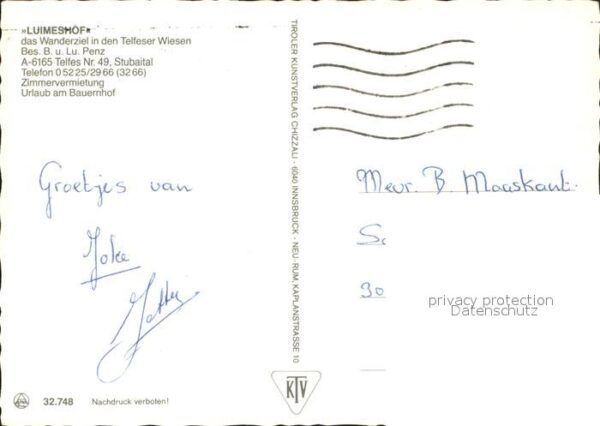 »LUIMESHÖF«
das Wanderziel in den Telfeser Wiesen
Bes. B. u. Lu. Penz
A-6165 Telfes Nr. 49, Stubaital
Telefon 0 52 25/29 66 (32 66)
Zimmervermietung
Urlaub am Bauernhof
Groetjes van
Joke
TIROLER KUNSTVERLAG CHIZZALI · 6040 INNSBRUCK - NEU-RUM, KAPLANSTRASSE 10
Mevr. B. Maaskant
S
30
privacy protection
Datenschutz
KTV
32.748 Nachdruck verboten!